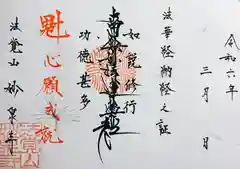 令和六年
三月 日
法華経納経之証
如説修行
南無妙法蓮華経
功徳甚多
魁
心願成就